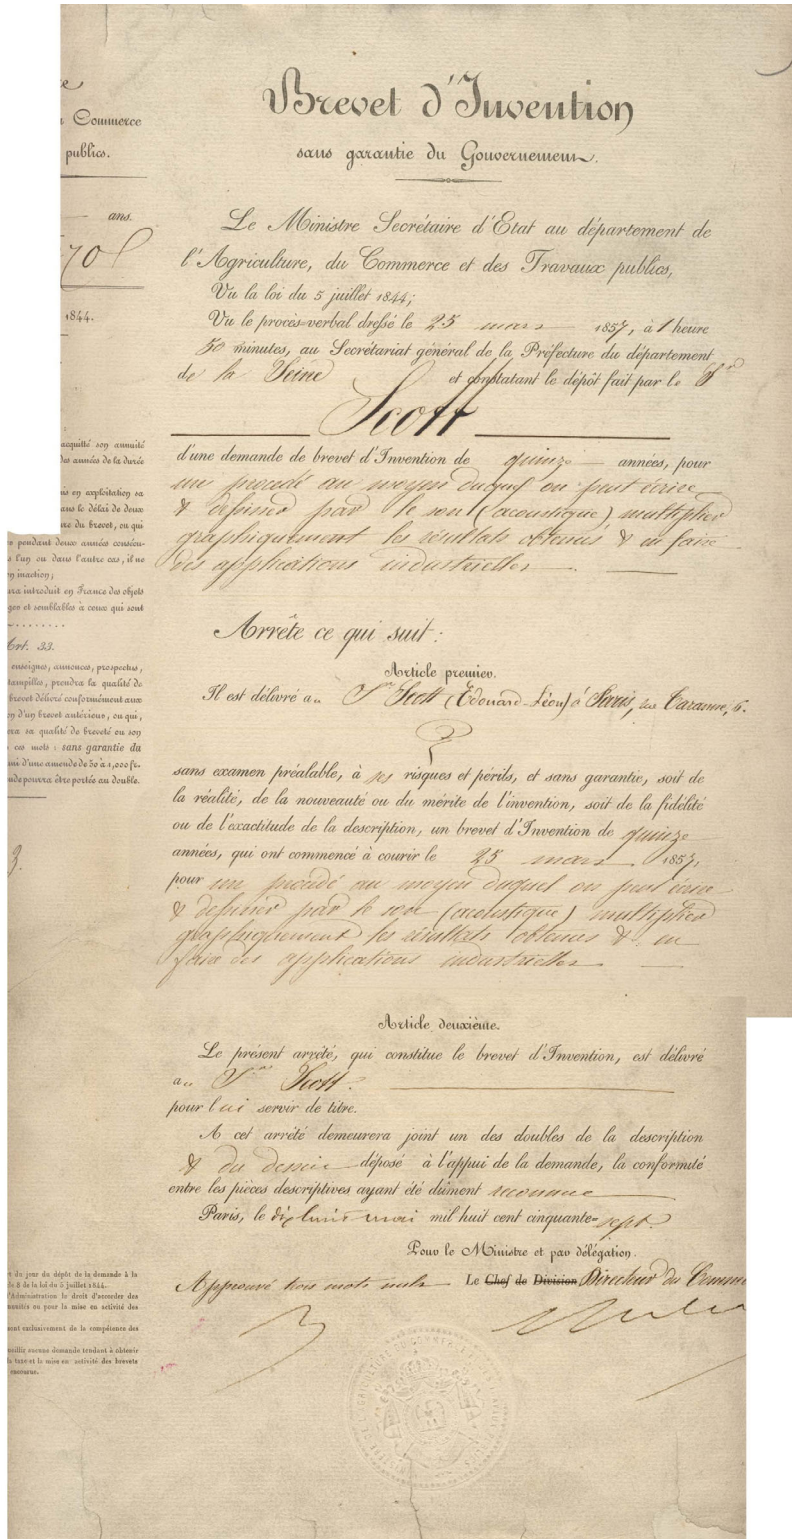 Commerce
publics.
ans.
70
1844.
acquitté son annuité
des années de la durée
mis en exploitation sa
dans le délai de deux
du brevet, ou qui
pendant deux années consécu-
l'un ou dans l'autre cas, il ne
inaction;
introduit en France des objets
et semblables à ceux qui sont
Art. 33.
enseignes, annonces, prospectus,
estampilles, prendra la qualité de
brevet délivré conformément aux
d'un brevet antérieur, ou qui,
sa qualité de breveté ou son
ces mots : sans garantie du
d'une amende de 50 à 1,000 fr.
pourra être portée au double.
3.
du jour du dépôt de la demande à la
de 8 de la loi du 5 juillet 1844.
l'Administration le droit d'accorder des
ou pour la mise en activité des
sont exclusivement de la compétence des
aucune demande tendant à obtenir
la taxe et la mise en activité des brevets
encourue.
Brevet d'Invention
sans garantie du Gouvernement.
Le Ministre Secrétaire d'Etat au département de
l'Agriculture, du Commerce et des Travaux publics,
Vu la loi du 5 juillet 1844;
Vu le procès-verbal dressé le 25 mars 1857, à 1 heure
50 minutes, au Secrétariat général de la Préfecture du département
de la Seine et constatant le dépôt fait par le Sr
Scott
d'une demande de brevet d'Invention de quinze années, pour
un procédé au moyen duquel on peut écrire
& dessiner par le son (acoustique) multiplier
graphiquement les résultats obtenus & en faire
des applications industrielles.
Arrête ce qui suit :
Article premier.
Il est délivré au Sr Scott (Edouard-Léon) à Paris, rue Taranne, 6.
sans examen préalable, à ses risques et périls, et sans garantie, soit de
la réalité, de la nouveauté ou du mérite de l'invention, soit de la fidélité
ou de l'exactitude de la description, un brevet d'Invention de quinze
années, qui ont commencé à courir le 25 mars 1857,
pour un procédé au moyen duquel on peut écrire
& dessiner par le son (acoustique) multiplier
graphiquement les résultats obtenus & en
faire des applications industrielles
Article deuxième.
Le présent arrêté, qui constitue le brevet d'Invention, est délivré
au Sr Scott.
pour lui servir de titre.
A cet arrêté demeurera joint un des doubles de la description
& du dessin déposé à l'appui de la demande, la conformité
entre les pièces descriptives ayant été dûment reconnue
Paris, le dix huit mai mil huit cent cinquante-sept.
Pour le Ministre et par délégation.
Approuvé trois mots nuls Le Chef de Division Directeur du Comme